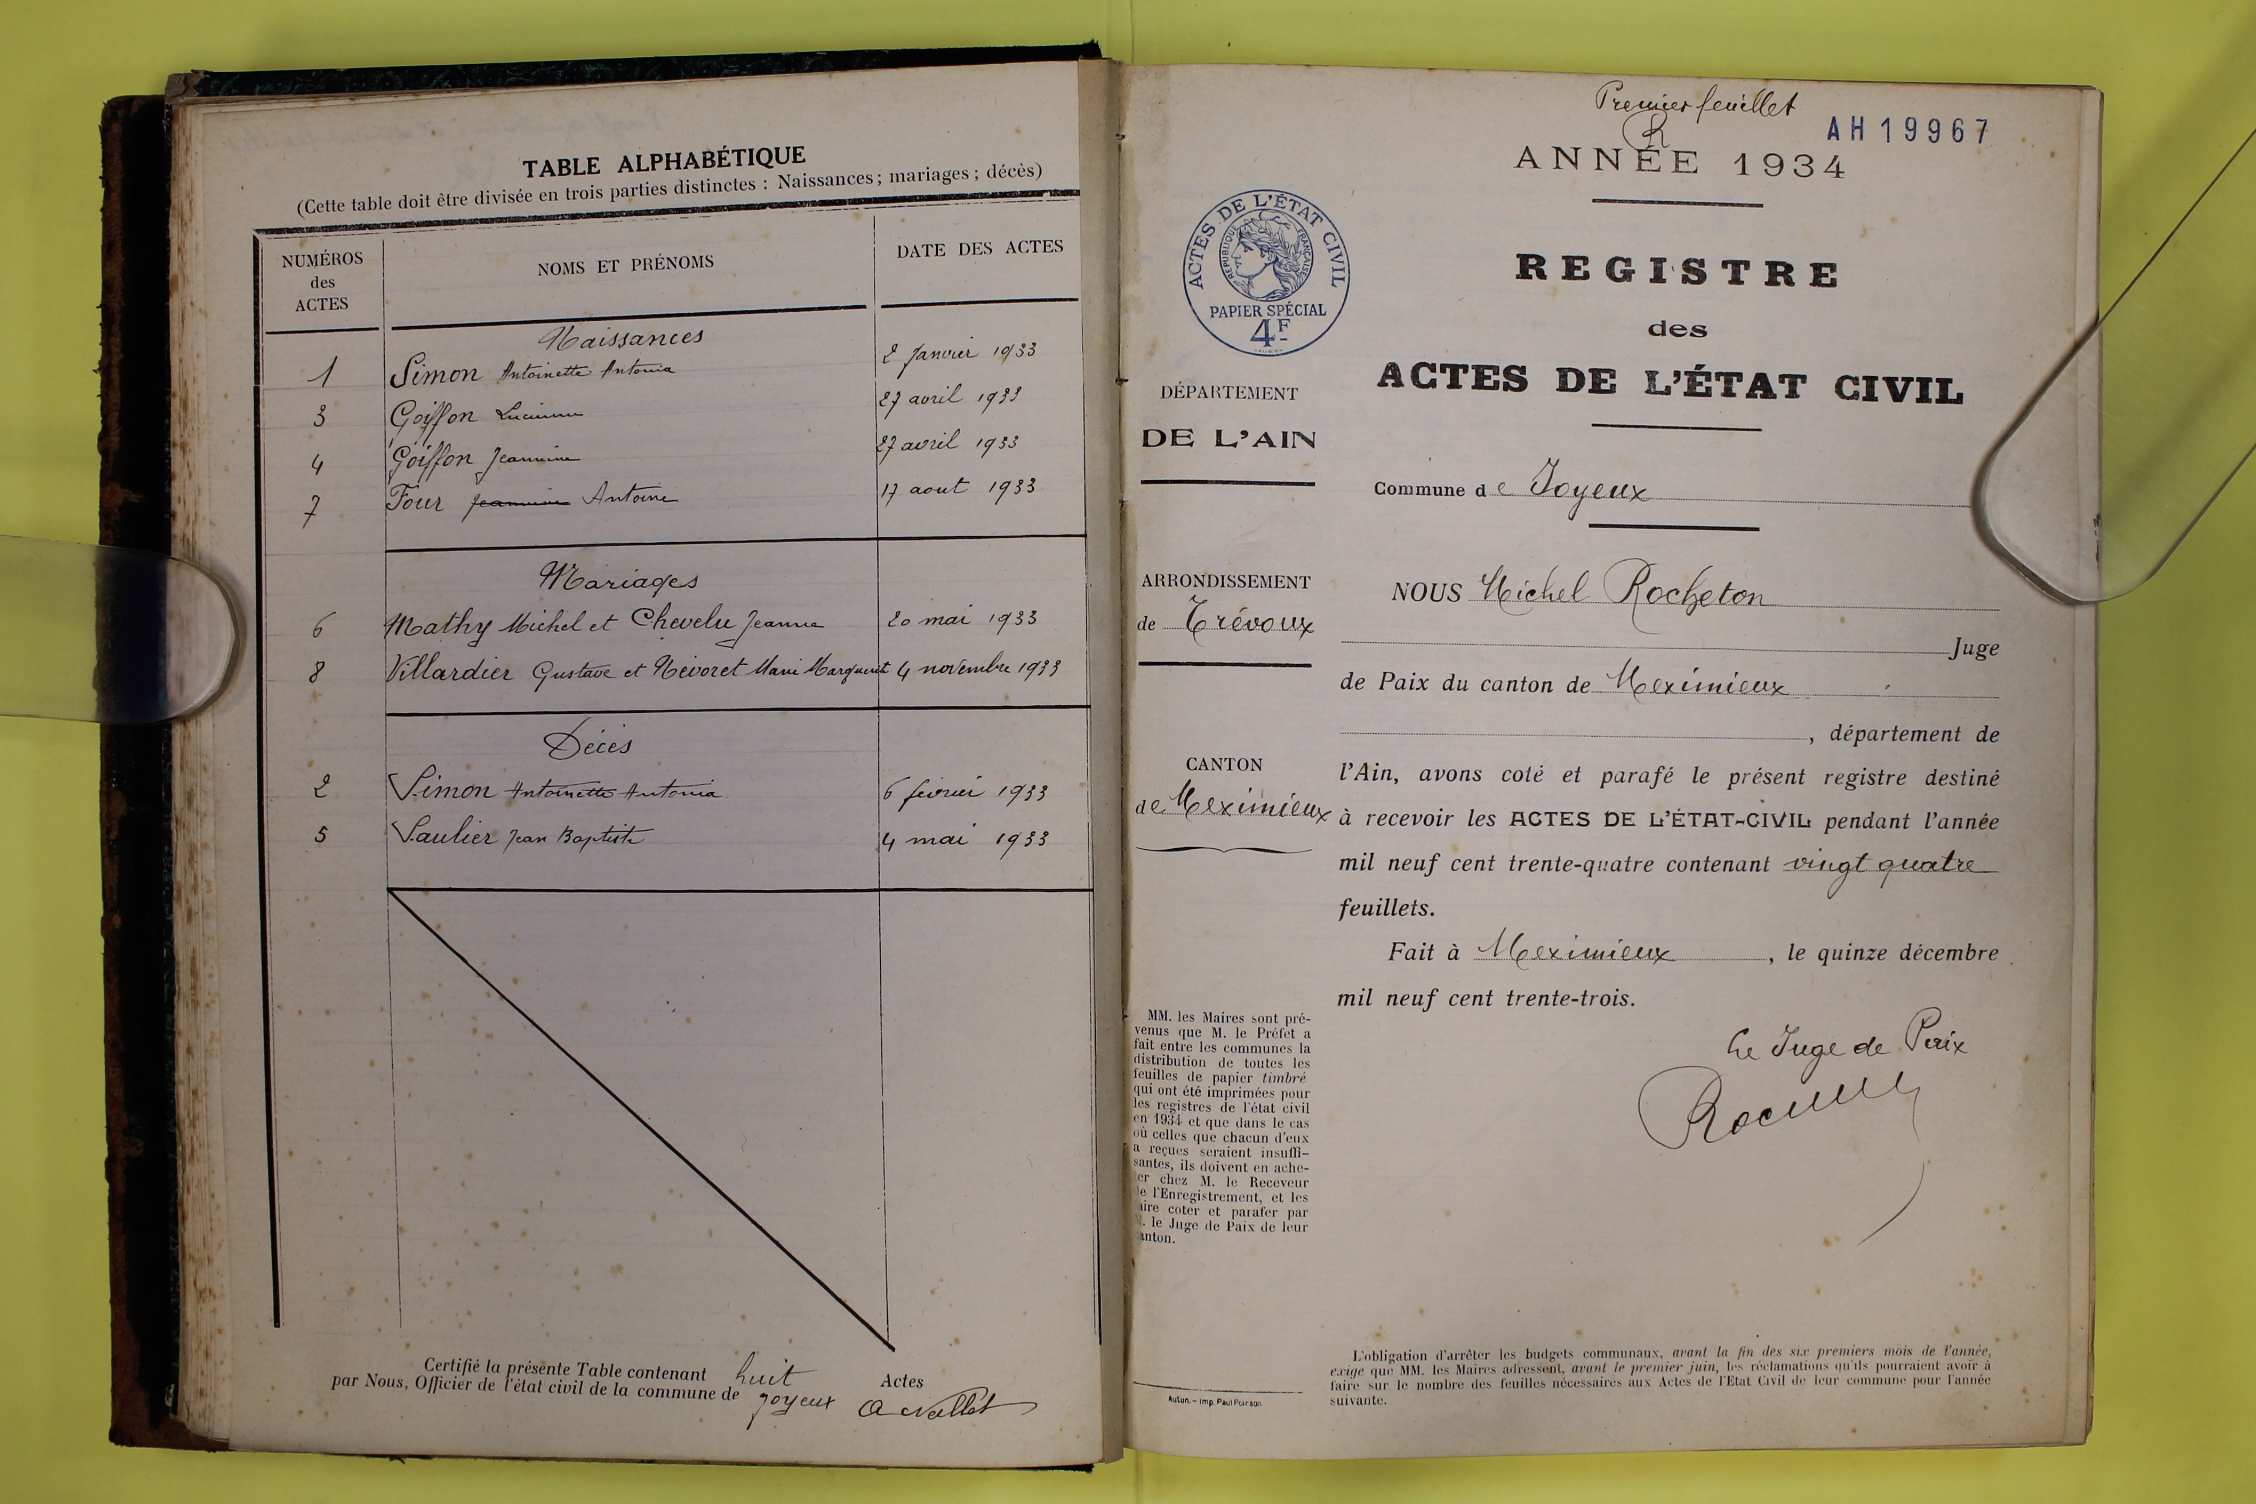 TABLE ALPHABÉTIQUE
(Cette table doit être divisée en trois parties distinctes : Naissances ; mariages ; décès)
NUMÉROS
des
ACTES
NOMS ET PRÉNOMS
DATE DES ACTES
Naissances
1 Simon Antoinette Antonia 2 Janvier 1933
3 Goiffon Lucienne 27 avril 1933
4 Goiffon Jeannine 27 avril 1933
7 Four Jeannine Antoine 17 aout 1933
Mariages
6 Mathy Michel et Chevelu Jeanne 20 mai 1933
8 Villardier Gustave et Névoret Marie Marguerit 4 novembre 1933
Décès
2 Simon Antoinette Antonia 6 février 1933
5 Saulier Jean Baptiste 4 mai 1933
Certifié la présente Table contenant huit Actes
par Nous, Officier de l'état civil de la commune de Joyeux
Premier feuillet
AH19967
ANNÉE 1934
ACTES DE L'ÉTAT CIVIL
RÉPUBLIQUE FRANÇAISE
PAPIER SPÉCIAL
4F
REGISTRE
des
ACTES DE L'ÉTAT CIVIL
DÉPARTEMENT
DE L'AIN
Commune de Joyeux
ARRONDISSEMENT
de Trévoux
CANTON
de Meximieux
NOUS Michel Rocheton
Juge
de Paix du canton de Meximieux
, département de
l'Ain, avons coté et parafé le présent registre destiné
à recevoir les ACTES DE L'ÉTAT-CIVIL pendant l'année
mil neuf cent trente-quatre contenant vingt quatre
feuillets.
Fait à Meximieux, le quinze décembre
mil neuf cent trente-trois.
Le Juge de Paix
MM. les Maires sont pré-
venus que M. le Préfet a
fait entre les communes la
distribution de toutes les
feuilles de papier timbré
qui ont été imprimées pour
les registres de l'état civil
en 1934 et que dans le cas
où celles que chacun d'eux
a reçues seraient insuffi-
santes, ils doivent en ache-
ter chez M. le Receveur
de l'Enregistrement, et les
aire coter et parafer par
M. le Juge de Paix de leur
anton.
Autun. – Imp. Paul Poirson.
L'obligation d'arrêter les budgets communaux, avant la fin des six premiers mois de l'année,
exige que MM. les Maires adressent, avant le premier juin, les réclamations qu'ils pourraient avoir à
faire sur le nombre des feuilles nécessaires aux Actes de l'Etat Civil de leur commune pour l'année
suivante.